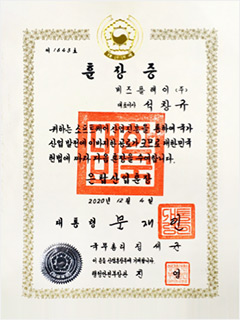 제 1643 호
훈장증
비즈플레이(주)
대표이사 석창규
귀하는 소프트웨어산업진흥을 통하여 국가
산업발전에 이바지한 공로가 크므로 대한민국
헌법에 따라 다음 훈장을 수여합니다
은탑산업훈장
2020년 12월 4일
대통령 문재인
국무총리 정세균
이 증을 산업훈장부에 기재합니다
행정안전부장관 진영